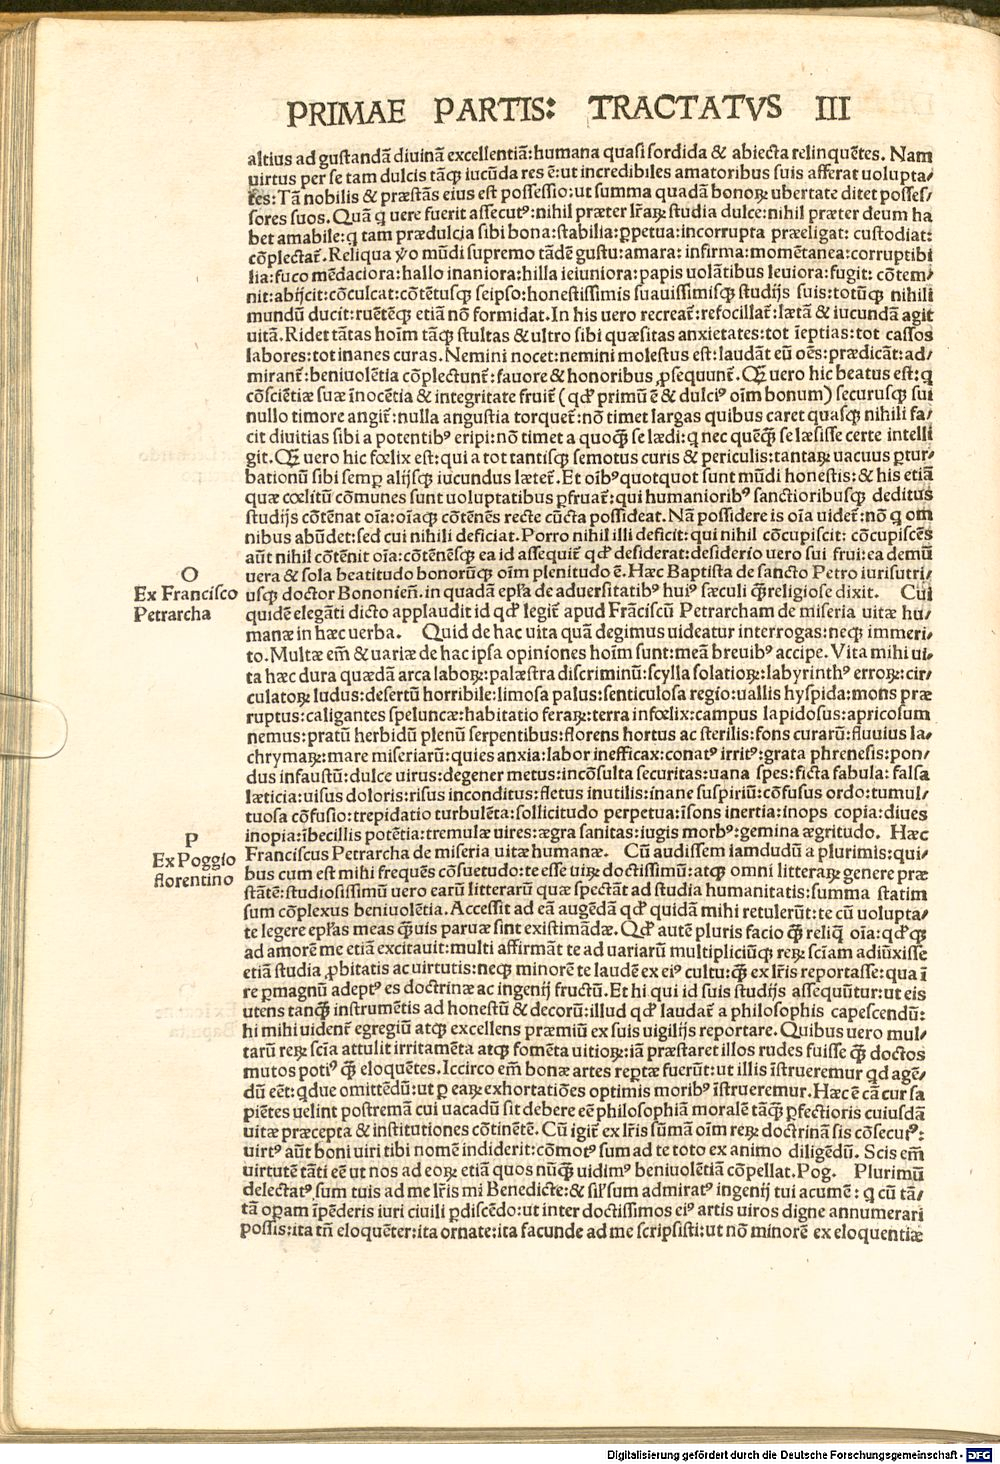 PRIMAE PARTIS: TRACTATVS III
altius ad gustandã diuinã excellentiã:humana quasi sordida & abiecta relinquẽtes. Nam
uirtus per se tam dulcis tãqꝫ iucũda res ẽ:ut incredibiles amatoribus suis afferat uolupta/
tes:Tã nobilis & præstãs eius est possessio:ut summa quadã bonoꝝ ubertate ditet posses/
sores suos. Quã q uere fuerit assecutꝰ:nihil præter lr̃aꝝ studia dulce:nihil præter deum ha
bet amabile:q tam prædulcia sibi bona:stabilia:ꝑpetua:incorrupta præeligat: custodiat:
cõplectat̃. Reliqua ꝟo mũdi supremo tãdẽ gustu:amara: infirma:momẽtanea:corruptibi
lia:fuco mẽdaciora:hallo inaniora:hilla ieiuniora:papis uolãtibus leuiora:fugit: cõtem/
nit:abijcit:cõculcat:cõtẽtusqꝫ seipso:honestissimis suauissimisqꝫ studijs suis:totũqꝫ nihili
mundũ ducit:ruẽtẽqꝫ etiã nõ formidat. In his uero recreat̃:refocillat̃:lætã & iucundã agit
uitã. Ridet tãtas hoĩm tãqꝫ stultas & ultro sibi quæsitas anxietates:tot ĩeptias:tot cassos
labores:tot inanes curas. Nemini nocet:nemini molestus est:laudãt eũ oẽs:prædicãt:ad/
mirant̃:beniuolẽtia cõplectunt̃:fauore & honoribus ꝓsequunt̃. Qꝫ uero hic beatus est:q
cõsciẽtiæ suæ ĩnocẽtia & integritate fruit̃ (qđ primũ ẽ & dulciꝰ oĩm bonum) securusqꝫ sui
nullo timore angit̃:nulla angustia torquet̃:nõ timet largas quibus caret quasqꝫ nihili fa/
cit diuitias sibi a potentibꝰ eripi:nõ timet a quoqꝫ̃ se lædi:q nec quẽqꝫ̃ se læsisse certe intelli
git. Qꝫ uero hic fœlix est:qui a tot tantisqꝫ semotus curis & periculis:tantaꝝ uacuus ꝑtur/
bationũ sibi semꝑ alijsqꝫ iucundus lætet̃. Et oĩbꝰ quotquot sunt mũdi honestis:& his etiã
quæ cœlitũ cõmunes sunt uoluptatibus ꝑfruat̃:qui humanioribꝰ sanctioribusqꝫ deditus
studijs cõtẽnat oĩa:oĩaqꝫ cõtẽnẽs recte cũcta possideat. Nã possidere is oĩa uidet̃:nõ q om
nibus abũdet:sed cui nihili deficiat. Porro nihil illi deficit:qui nihil cõcupiscit: cõcupiscẽs
aũt nihil cõtẽnit oĩa:cõtẽnẽsqꝫ ea id assequit̃ qđ desiderat:desiderio uero sui frui:ea demũ
uera & sola beatitudo bonorũqꝫ oĩm plenitudo ẽ. Hæc Baptista de sancto Petro iurisutri/
usqꝫ doctor Bononieñ. in quadã epl̃a de aduersitatibꝰ huiꝰ sæculi qꝫ̃religiose dixit. Cui
O
Ex Francisco
Petrarcha
quidẽ elegãti dicto applaudit id qđ legit̃ apud Frãciscũ Petrarcham de miseria uitæ hu/
manæ in hæc uerba. Quid de hac uita quã degimus uideatur interrogas:neqꝫ immeri/
to. Multæ em̃ & uariæ de hac ipsa opiniones hoĩm sunt:meã breuibꝰ accipe. Vita mihi ui/
ta hæc dura quædã arca laboꝝ:palæstra discriminũ:scylla solatioꝝ:labyrinthꝰ erroꝝ:cir/
culatoꝝ ludus:desertũ horribile:limosa palus:senticulosa regio:uallis hyspida:mons præ
ruptus:caligantes speluncæ:habitatio feraꝝ:terra infœlix:campus lapidosus:apricosum
nemus:pratũ herbidũ plenũ serpentibus:florens hortus ac sterilis:fons curarũ:fluuius la/
chrymaꝝ:mare miseriarũ:quies anxia:labor inefficax:conatꝰ irritꝰ:grata phrenesis:pon/
dus infaustũ:dulce uirus:degener metus:incõsulta securitas:uana spes:ficta fabula: falsa
læticia:uisus doloris:risus inconditus:fletus inutilis:inane suspiriũ:cõfusus ordo:tumul/
tuosa cõfusio:trepidatio turbulẽta:sollicitudo perpetua:ĩsons inertia:inops copia:diues
inopia:ĩbecillis potẽtia:tremulæ uires:ægra sanitas:iugis morbꝰ:gemina ægritudo. Hæc
Franciscus Petrarcha de miseria uitæ humanæ. Cũ audissem iamdudũ a plurimis:qui/
P
Ex Poggio
florentino
bus cum est mihi frequẽs cõsuetudo:te esse uiꝝ doctissimũ:atqꝫ omni litteraꝝ genere præ
stãtẽ:studiosissimũ uero earũ litterarũ quæ spectãt ad studia humanitatis:summa statim
sum cõplexus beniuolẽtia. Accessit ad eã augẽdã qđ quidã mihi retulerũt:te cũ uolupta/
te legere epl̃as meas qꝫ̃uis paruæ sint existimãdæ. Qđ autẽ pluris facio qꝫ̃ reliq̃ oĩa:qđqꝫ
ad amorẽ me etiã excitauit:multi affirmãt te ad uariarũ multipliciũqꝫ reꝝ sciam adiũxisse
etiã studia ꝓbitatis ac uirtutis:neqꝫ minorẽ te laudẽ ex eiꝰ cultu:qꝫ̃ ex lr̃is reportasse:qua ĩ
re ꝑmagnũ adeptꝰ es doctrinæ ac ingenij fructũ. Et hi qui id suis studijs assequũtur:ut eis
utens tanqꝫ̃ instrumẽtis ad honestũ & decorũ:illud qđ laudat̃ a philosophis capescendũ:
hi mihi uident̃ egregiũ atqꝫ excellens præmiũ ex suis uigilijs reportare. Quibus uero mul/
tarũ reꝝ scĩa attulit irritamẽta atqꝫ fomẽta uitioꝝ:iã præstaret illos rudes fuisse qꝫ̃ doctos
mutos potiꝰ qꝫ̃ eloquẽtes. Iccirco em̃ bonæ artes reꝑtæ fuerũt:ut illis ĩstrueremur qd agẽ/
dũ eẽt:qdue omittẽdũ:ut ꝑ eaꝝ exhortatiões optimis moribꝰ ĩstrueremur. Hæc ẽ cã cur sa
piẽtes uelint postremã cui uacadũ sit debere eẽ philosophiã moralẽ tãqꝫ ꝑfectioris cuiusdã
uitæ præcepta & institutiones cõtinẽtẽ. Cũ igit̃ ex lr̃is sũmã oĩm reꝝ doctrinã sis cõsecutꝰ:
uirtꝰ aũt boni uiri tibi nomẽ indiderit:cõmotꝰ sum ad te toto ex animo diligẽdũ. Scis em̃
uirtutẽ tãti eẽ ut nos ad eoꝝ etiã quos nũqꝫ̃ uidimꝰ beniuolẽtiã cõpellat. Pog. Plurimũ
delectatꝰ sum tuis ad me lr̃is mi Benedicte:& sil̃ sum admiratꝰ ingenij tui acumẽ: q cũ tã/
tã oꝑam ĩpẽderis iuri ciuili ꝑdiscẽdo:ut inter doctissimos eiꝰ artis uiros digne annumerari
possis:ita tñ eloquẽter:ita ornate:ita facunde ad me scripsisti:ut nõ minorẽ ex eloquentiæ
Digitalisierung gefördert durch die Deutsche Forschungsgemeinschaft - DFG